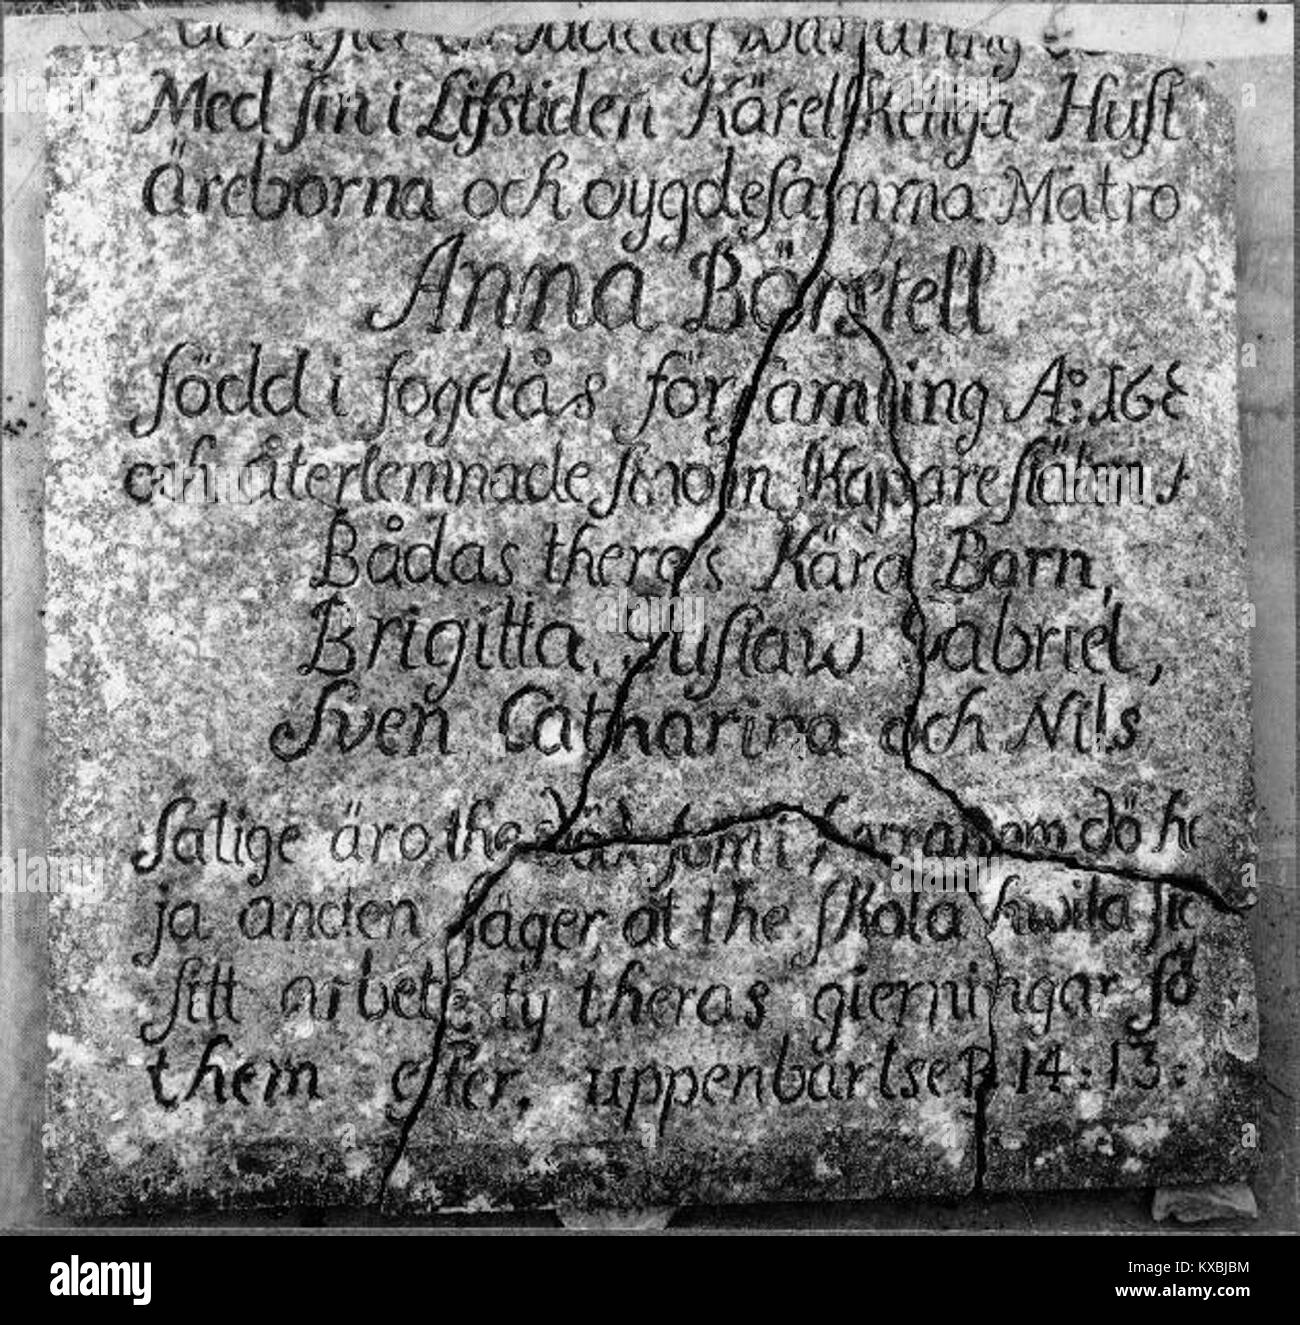 Med ſin i Lifstiden Kärelſkeliga Huſt
Äreborna och dygdeſamma Matro
Anna Börstell
född i fogelås förſamling A:o 168
och återlemnade ſin ſkapare ſiälen
Bådas theras Kära Barn,
Brigitta, Guſtaw Gabriel,
Sven Catharina och Nils
Salige äro the död ſom i herranom dö he
ja anden ſäger at the ſkola hwila ſig
ſitt arbete ty theras gierningar fö
them efter. uppenbarlse B 14: 13:
alamy
Image ID: KXBJBM
www.alamy.com